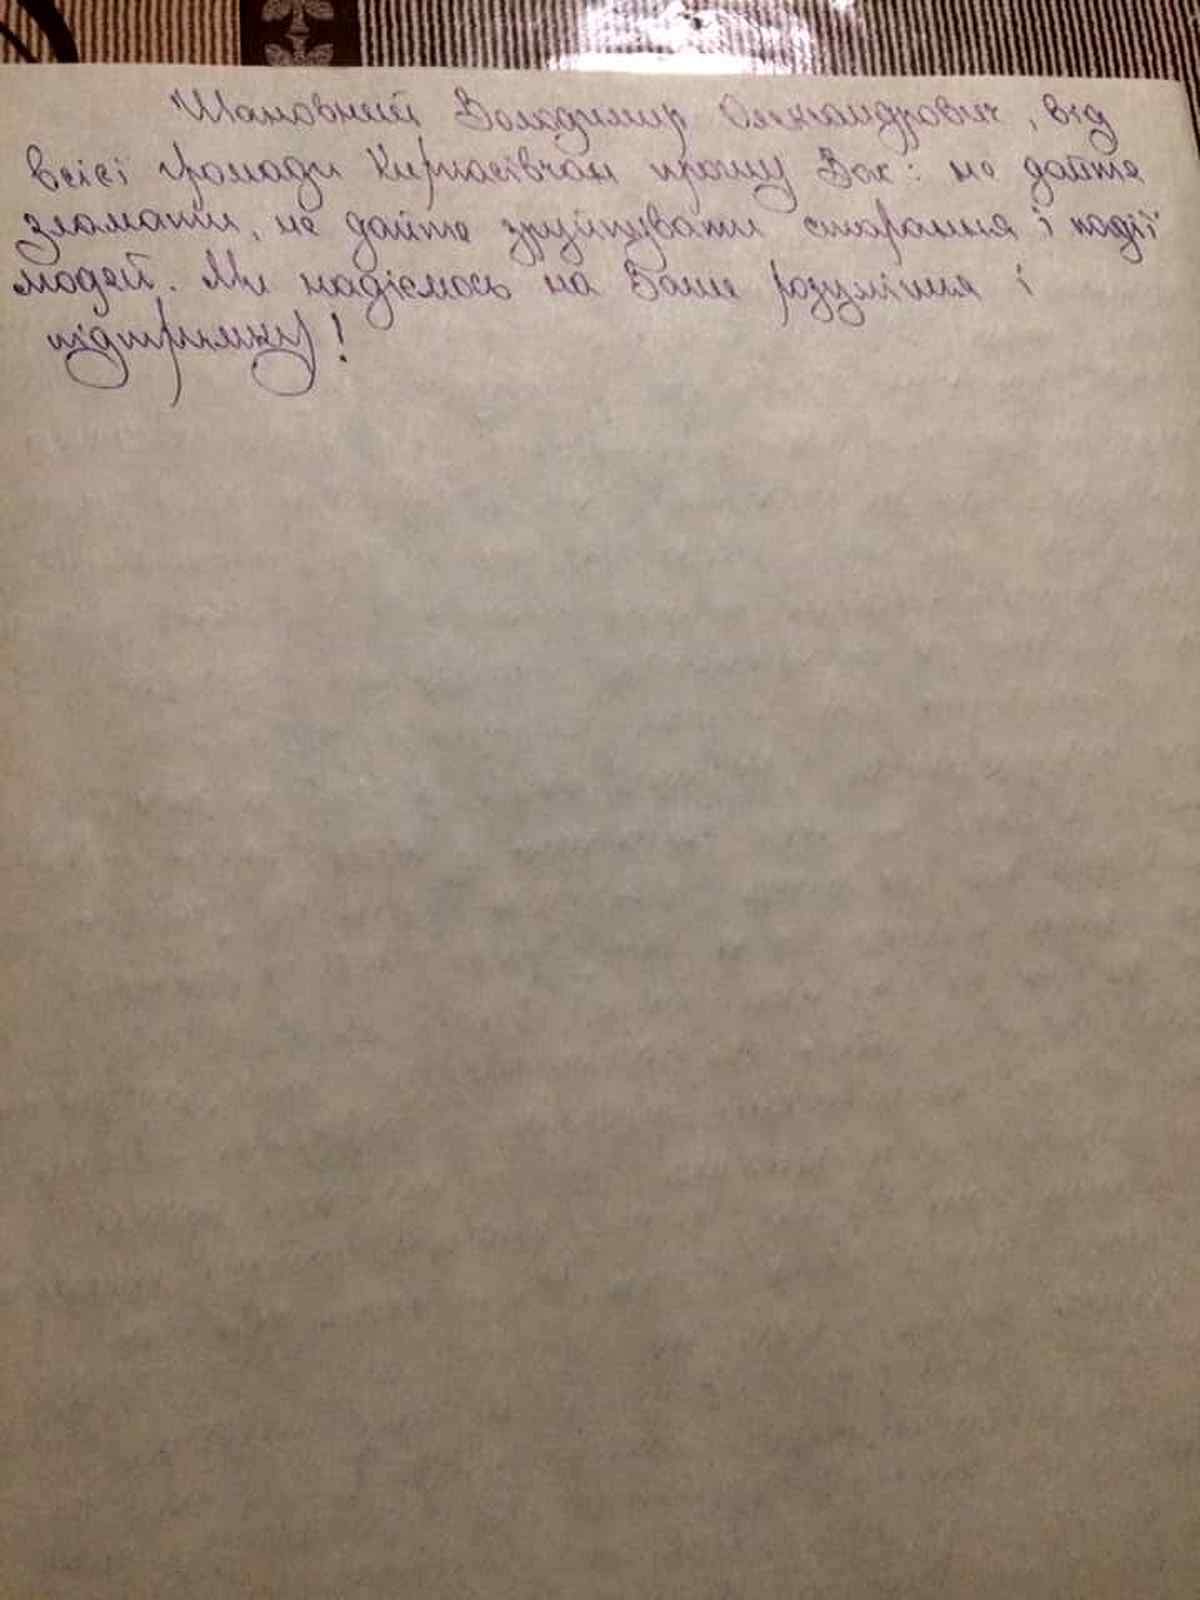 Шановний Володимир Олександрович, від
всієї громади Кирнасівчан прошу Вас: не дайте
зламати, не дайте зруйнувати старання і надії
людей. Ми надіємось на Ваше розуміння і
підтримку!